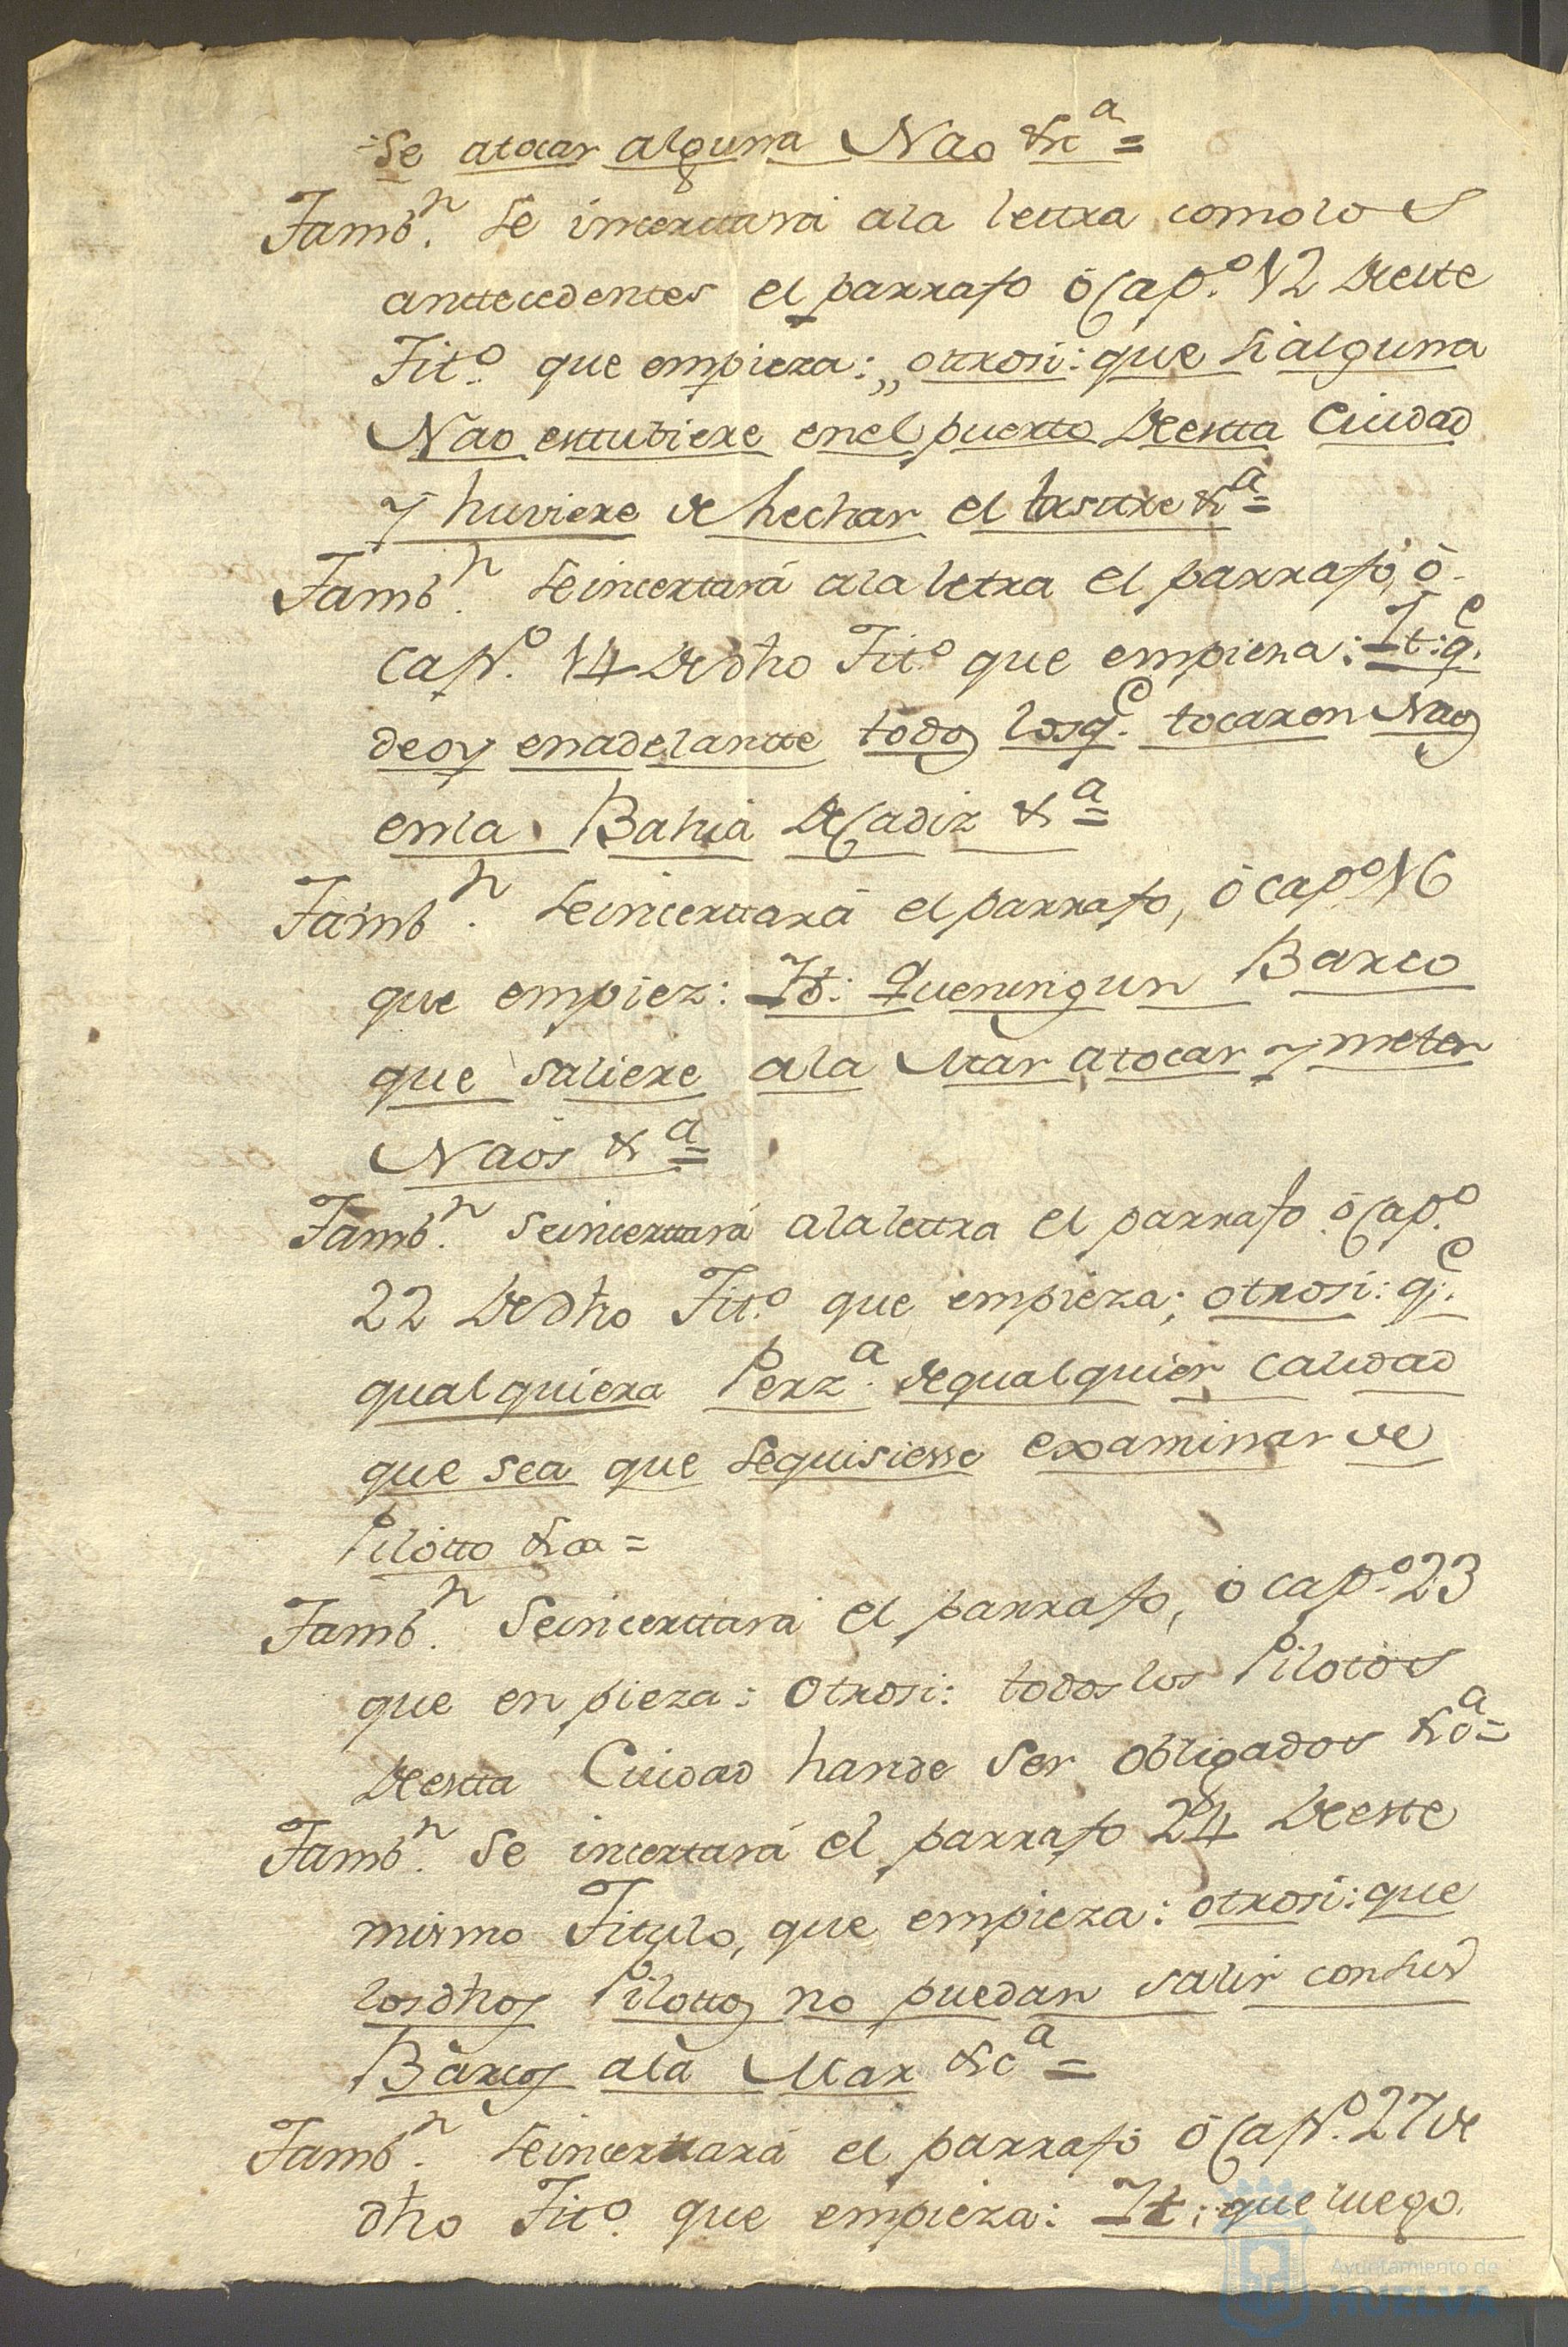 se atocar alguna Nao &cª=
Tambⁿ. se incerttará ala lettra como los
anttecedentes el parrafo ó Capº. 12 de este
Titº. que empieza: „ ottrosi: que si alguna
Nao esttubiere enel puertto de estta Ciudad
y huviere de hechar el lasttre &ª=
Tambⁿ. se incertará ala letra el parrafo, ó
Capº. 14 de dho Titº que empieza: It: qᵉ.
de oy enadelantte todos losqᵉ. tocaren Naos
enla Bahia de Cadiz &ª=
Tambⁿ. se incerttará el parrafo, ó capº 16
que empiez: It: Queningun Barco
que saliere ala Mar atocar y meter
Naos &ª=
Tambⁿ. se incerttará ala lettra el parrafo ó Capº.
22 de dho Titº que empieza; otrosi: qᵉ.
qualquiera Perzª. de qualquier calidad
que sea que se quisiesse examinar de
Pilotto &ca=
Tambⁿ. se incerttará el parrafo, ó capº. 23
que en pieza: Otrosi: todos los Pilotos
de estta Ciudad hande ser obligados &cª=
Tambⁿ. se incertará el parrafo 24 de este
mismo Titulo, que empieza: otrosi: que
los dhos Pilottos no puedan salir con sus
Barcos ala Mar &cª=
Tambⁿ. se incerttará el parrafo ó Capº. 27 de
dho Titº. que empieza: It: que luego
Ayuntamiento de
HUELVA